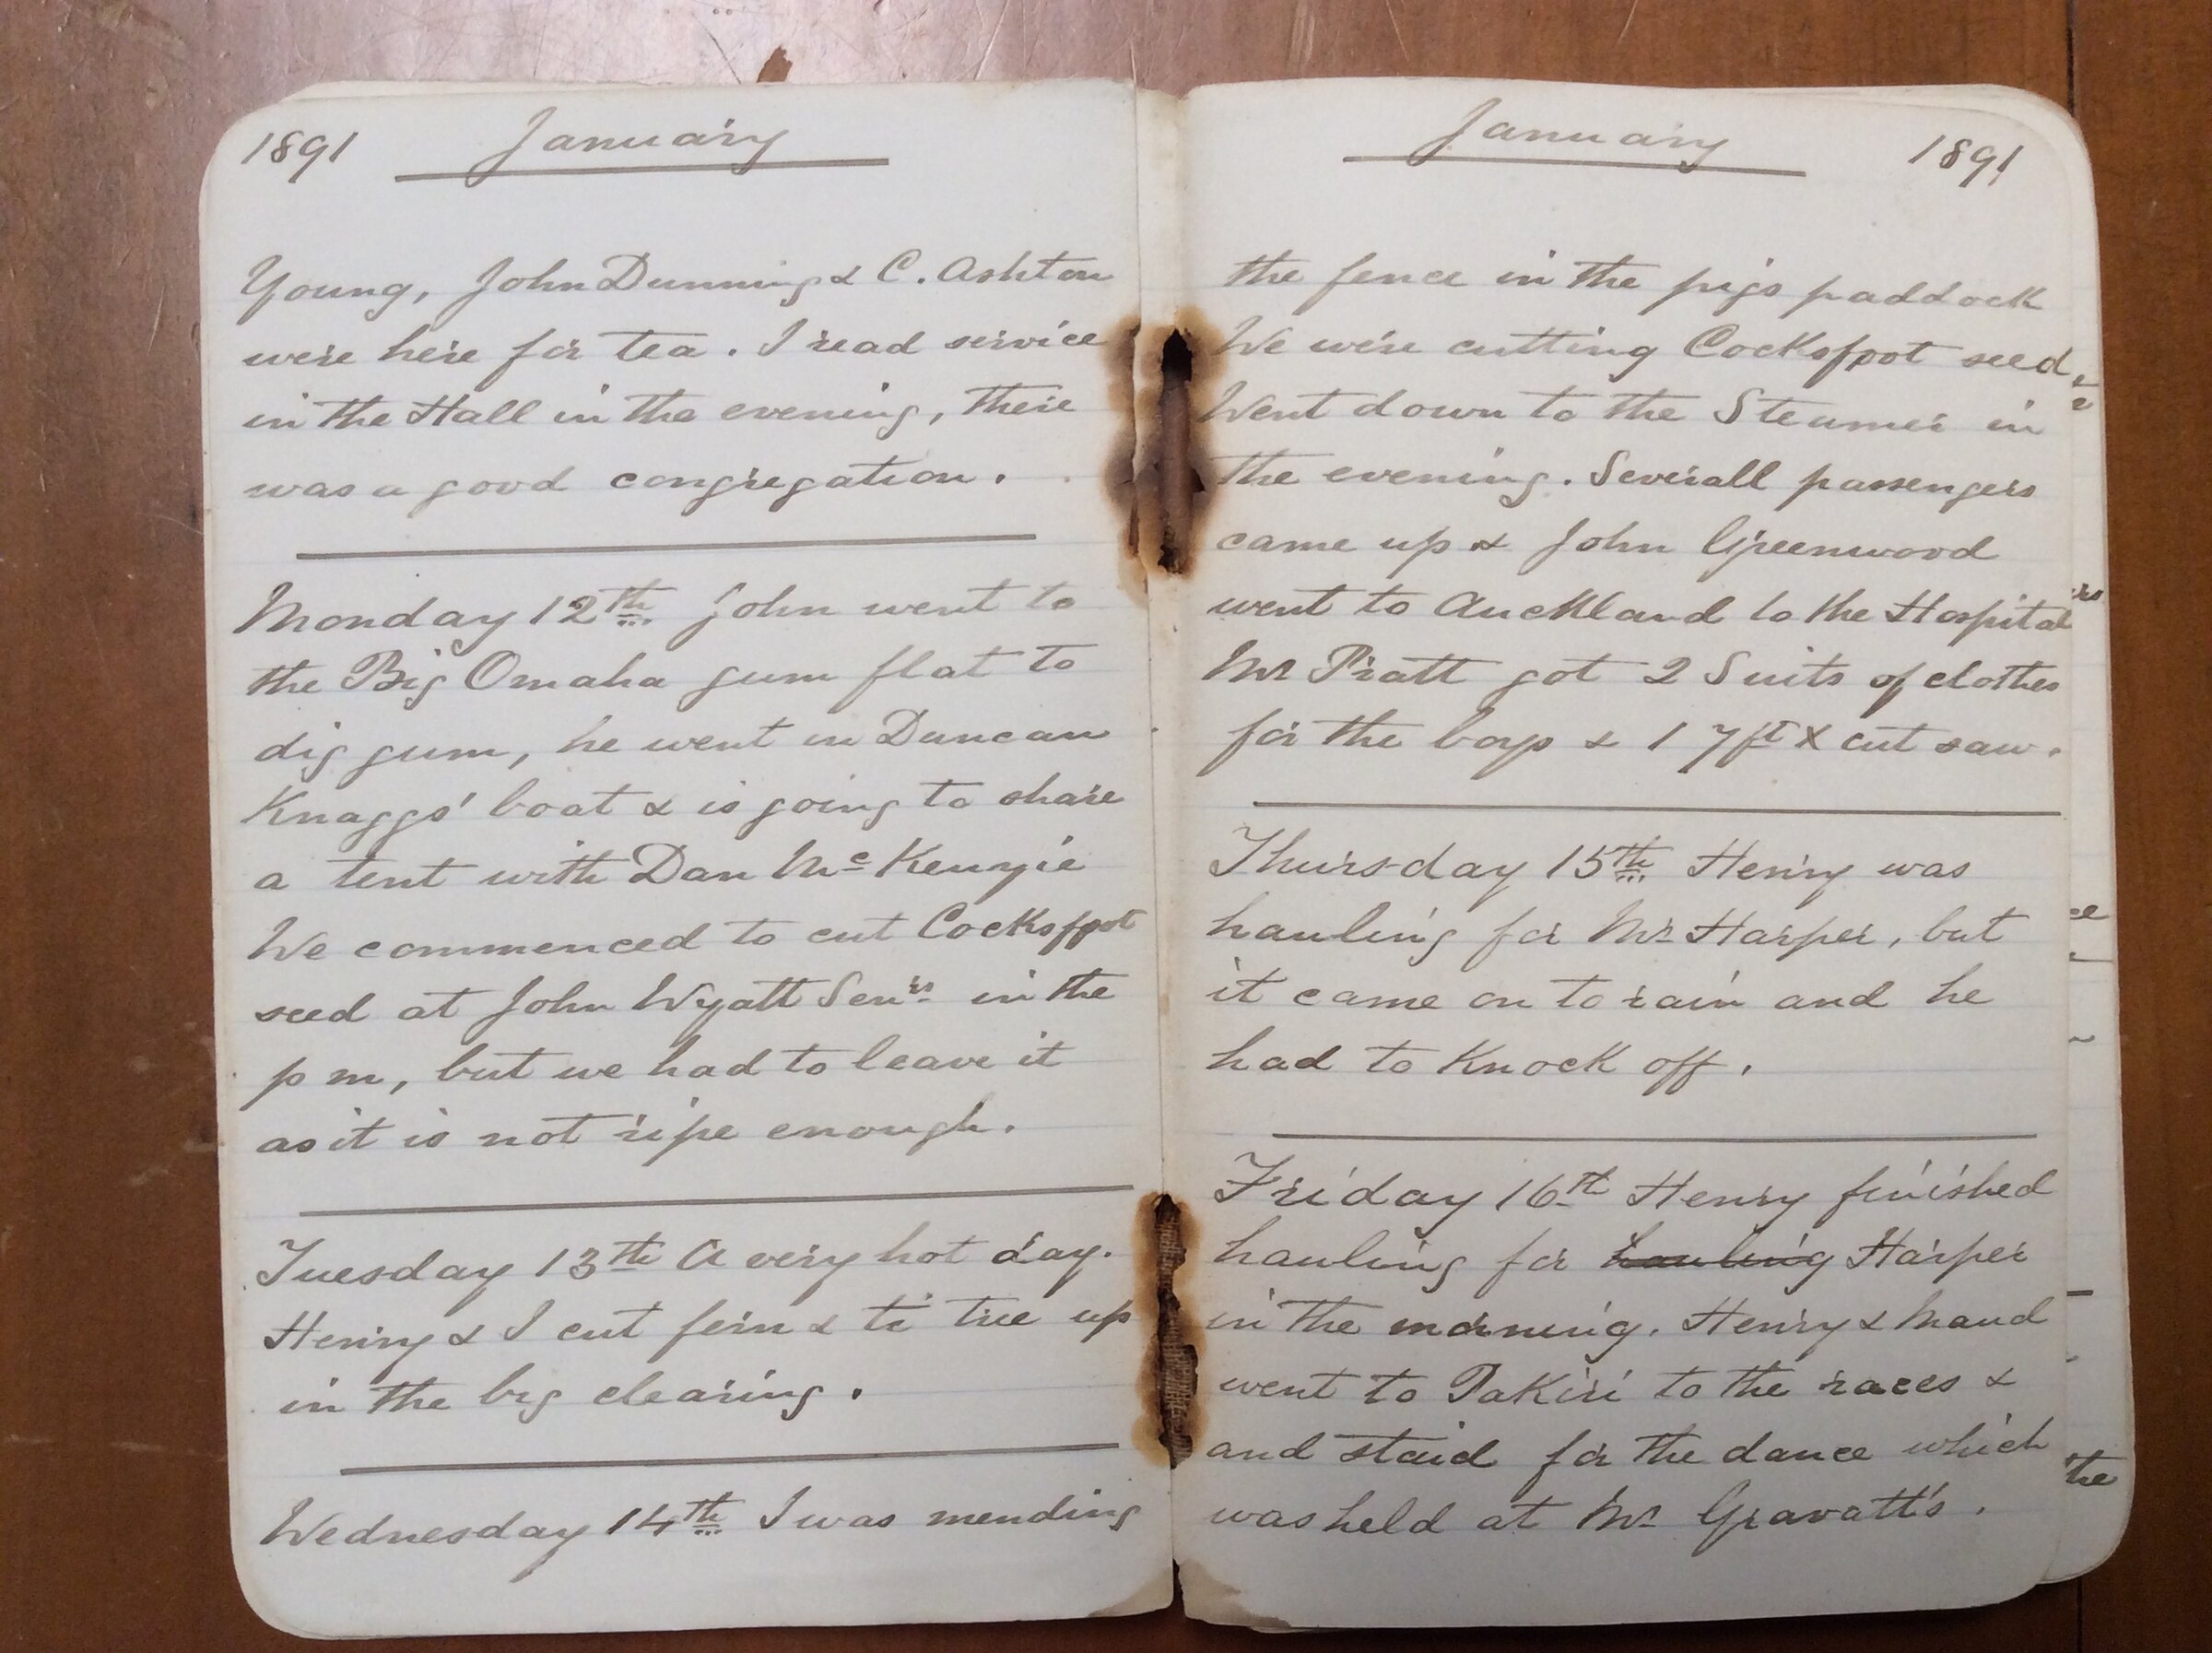 1891 January
Young, John Dunning & C. Ashton
were here for tea. I read service
in the Hall in the evening, there
was a good congregation.
Monday 12th John went to
the Big Omaha gum flat to
dig gum, he went in Duncan
Knaggs' boat & is going to share
a tent with Dan McKenzie
We commenced to cut Cocksfoot
seed at John Wyatt Senrs in the
p m, but we had to leave it
as it is not ripe enough.
Tuesday 13th A very hot day.
Henry & I cut fern & ti tree up
in the big clearing.
Wednesday 14th I was mending
January 1891
the fence in the pigs paddock
We were cutting Cocksfoot seed
Went down to the Steamer in
the evening. Severall passengers
came up & John Greenwood
went to Auckland to the Hospital
Mr Pratt got 2 Suits of clothes
for the boys & 1 7ft X cut saw.
Thursday 15th Henry was
hauling for Mr Harper, but
it came on to rain and he
had to Knock off.
Friday 16th Henry finished
hauling for hauling Harper
in the morning. Henry & Maud
went to Pakiri to the races &
and staid for the dance which
was held at Mr Gravatt's.
the